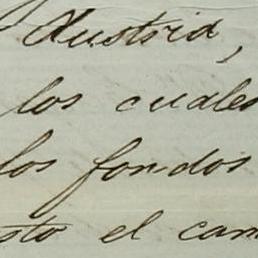 Austria,
los cuales
los fondos
sto el cam